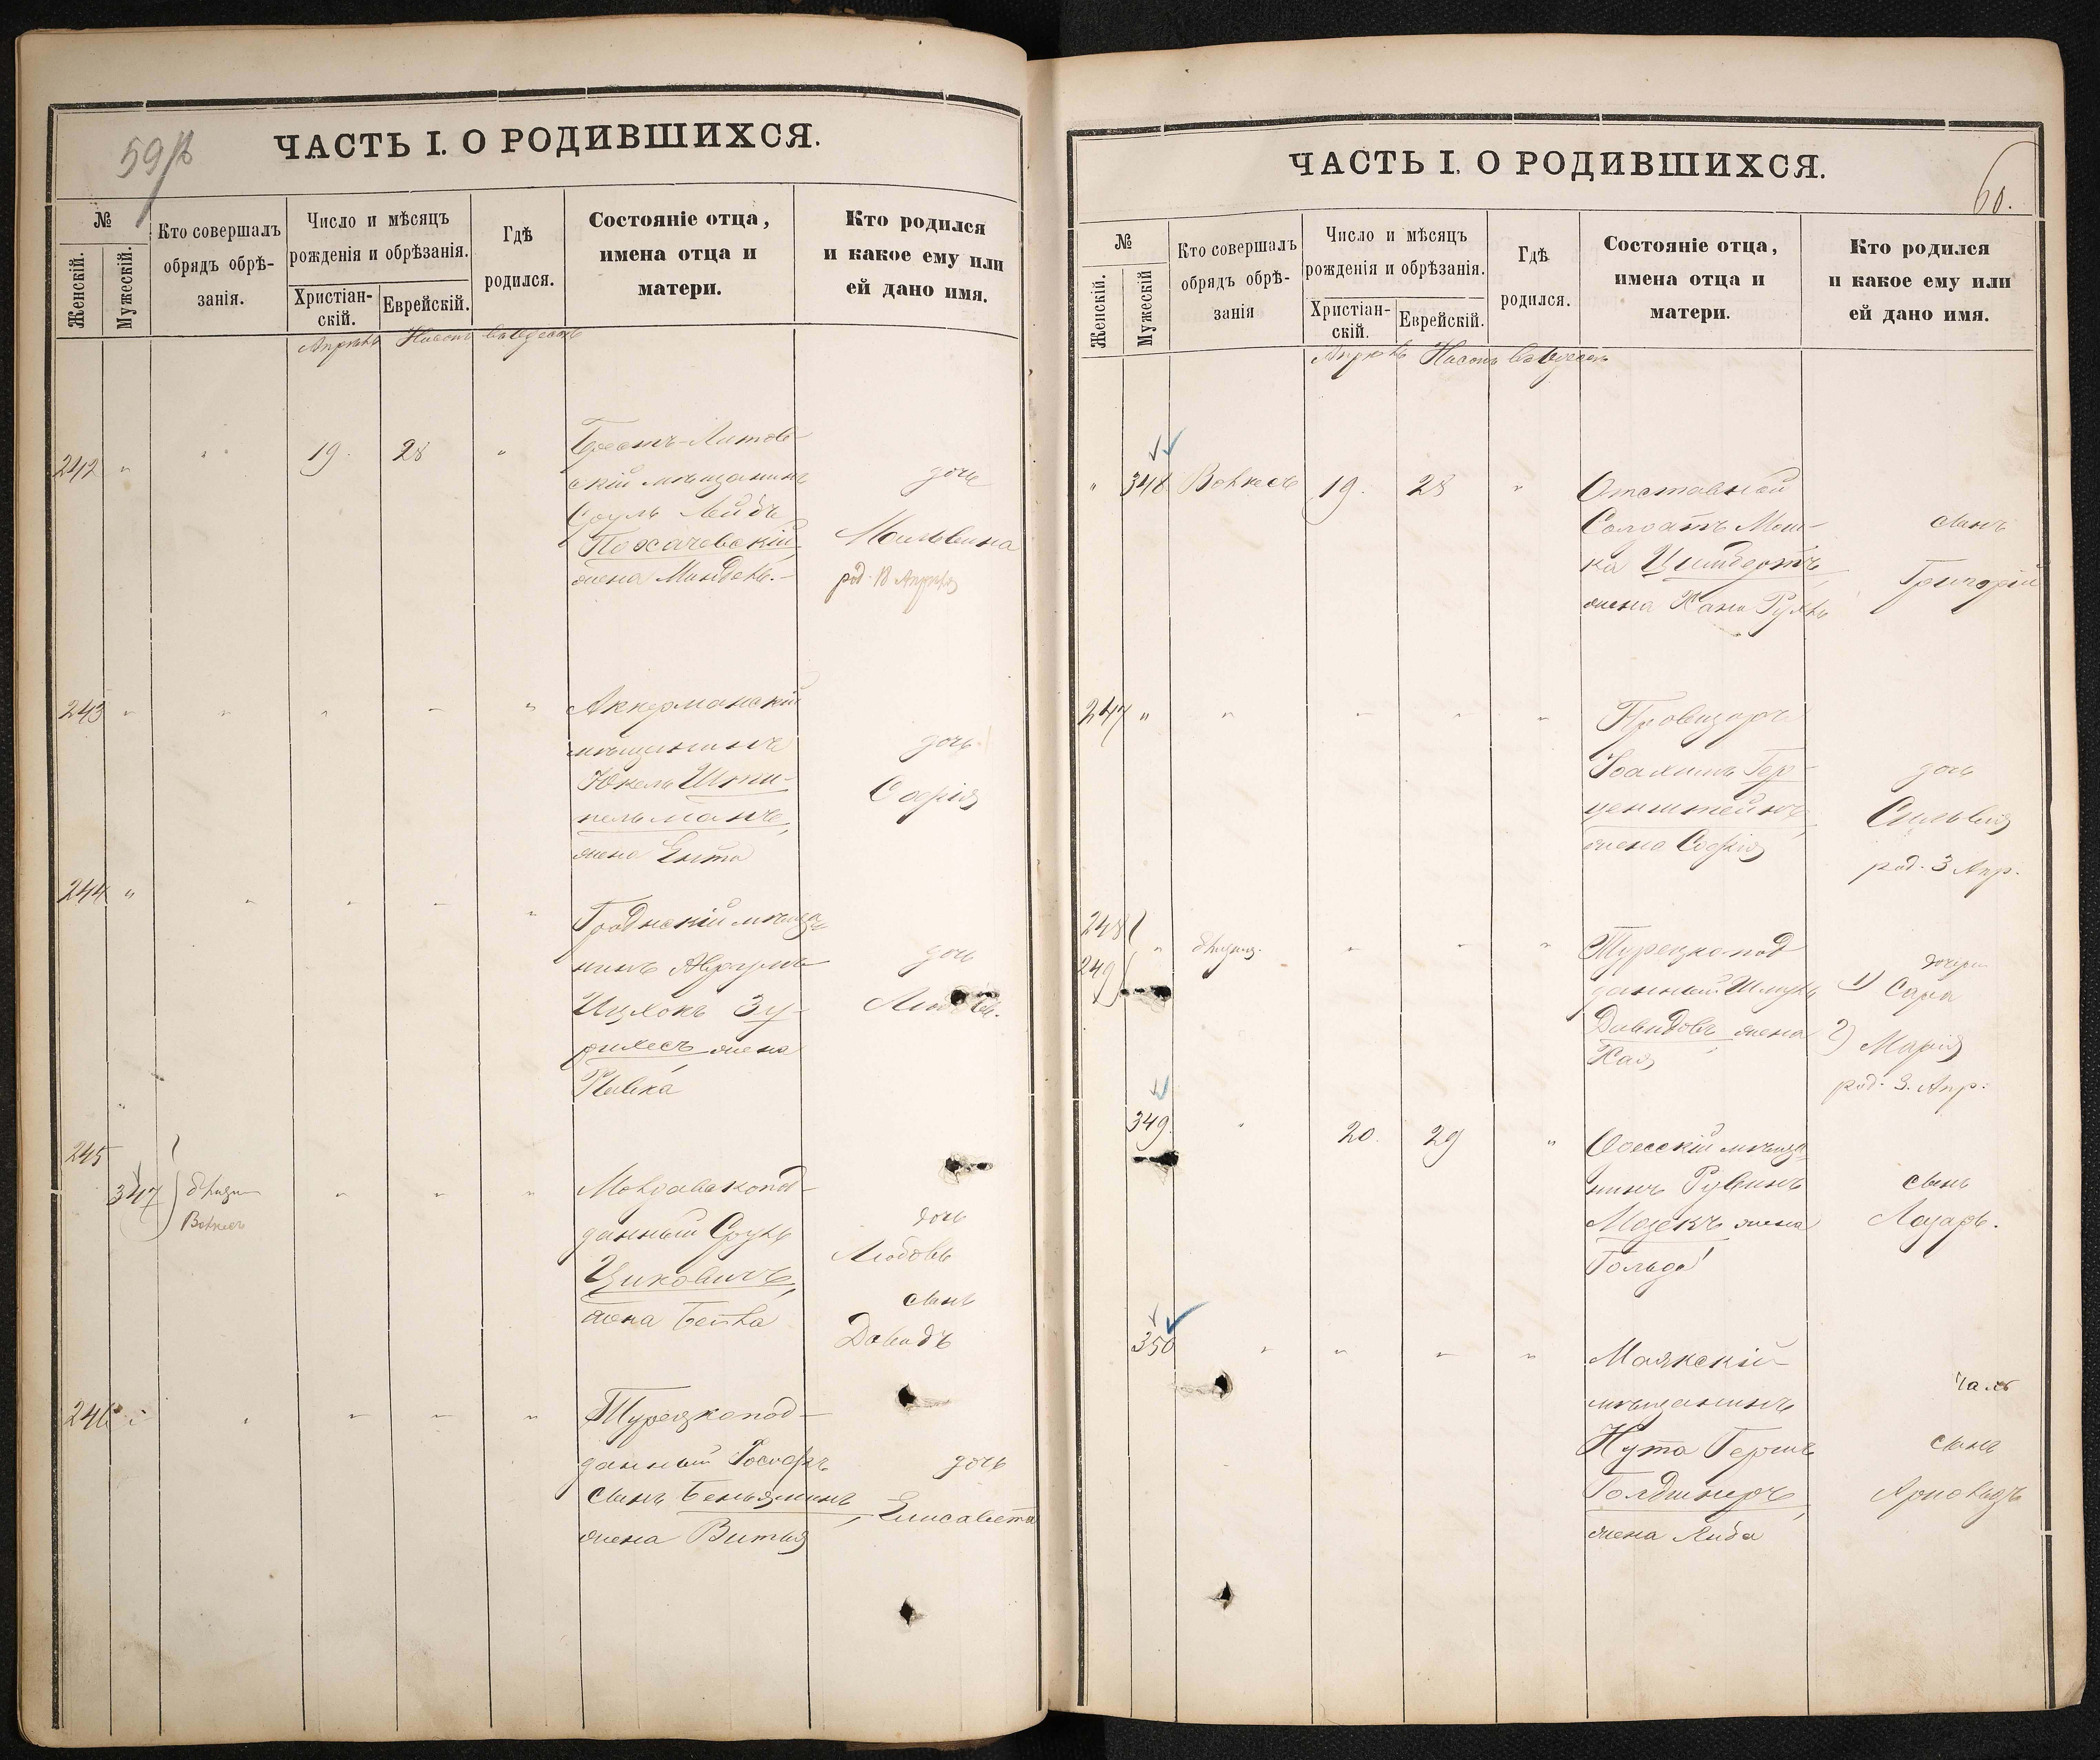 59
ЧАСТЬ I. О РОДИВШИХСЯ.
№
Женскій.
Мужескій.
Кто совершалъ
обрядъ обрѣ-
занія.
Число и мѣсяцъ
рожденія и обрѣзанія.
Христіан-
скій.
Еврейскій.
Гдѣ
родился.
Состояніе отца,
имена отца и
матери.
Кто родился
и какое ему или
ей дано имя.
Апрѣль Нисонъ въ Одессѣ
242 " " 19. 28 "
Брестъ-Литов-
скій мѣщанинъ
Сруль Лейбъ
Похачевскій,
жена Миндель.-
дочь
Мальвина
род. 18 Апрѣля
243 " " " " "
Аккерманскій
мѣщанинъ
Юкель Шти-
пельманъ,
жена Ента
дочь
Софія
244 " " " " "
Гродненскій мѣща-
нинъ Аврумъ
Ицхокъ Зу-
рихесъ жена
Ривка
дочь
Любовь.
245
347
Вѣлкесъ
" " "
Молдавскопод-
данный Сруль
Циковичъ,
жена Бейла
дочь
Любовь
сынъ
Давидъ
246 " " " " "
Турецкопод-
данный Іосифъ
сынъ Беньяминъ,
жена Витья
дочь
Елисавета
60.
ЧАСТЬ I. О РОДИВШИХСЯ.
№
Женскій.
Мужескій
Кто совершалъ
обрядъ обрѣ-
занія
Число и мѣсяцъ
рожденія и обрѣзанія.
Христіан-
скій.
Еврейскій.
Гдѣ
родился.
Состояніе отца,
имена отца и
матери.
Кто родился
и какое ему или
ей дано имя.
Апрѣль Нисонъ въ Одессѣ
" 348 Вѣлкесъ 19. 28 "
Отставной
Солдатъ Мош-
ка Цимбротъ,
жена Хана Рухль
сынъ
Григорій
247 " " " " "
Провизоръ
Іоахимъ Гер-
ценштейнъ,
жена Софія
дочь
Сильвія
род. 3 Апр.
248
249
" " " "
Турецкопод
данный Шмуль
Давидовъ, жена
Хая
дочери
1) Сара
2) Марія
род. 3. Апр.
349. " 20. 29 "
Одесскій мѣща-
нинъ Рувинъ
Мозекъ, жена
Гольда
сынъ
Лазарь.
350 " " " "
Маякскій
мѣщанинъ
Нута Гершъ
Голдшнеръ,
жена Либа
сынъ
Арнольдъ